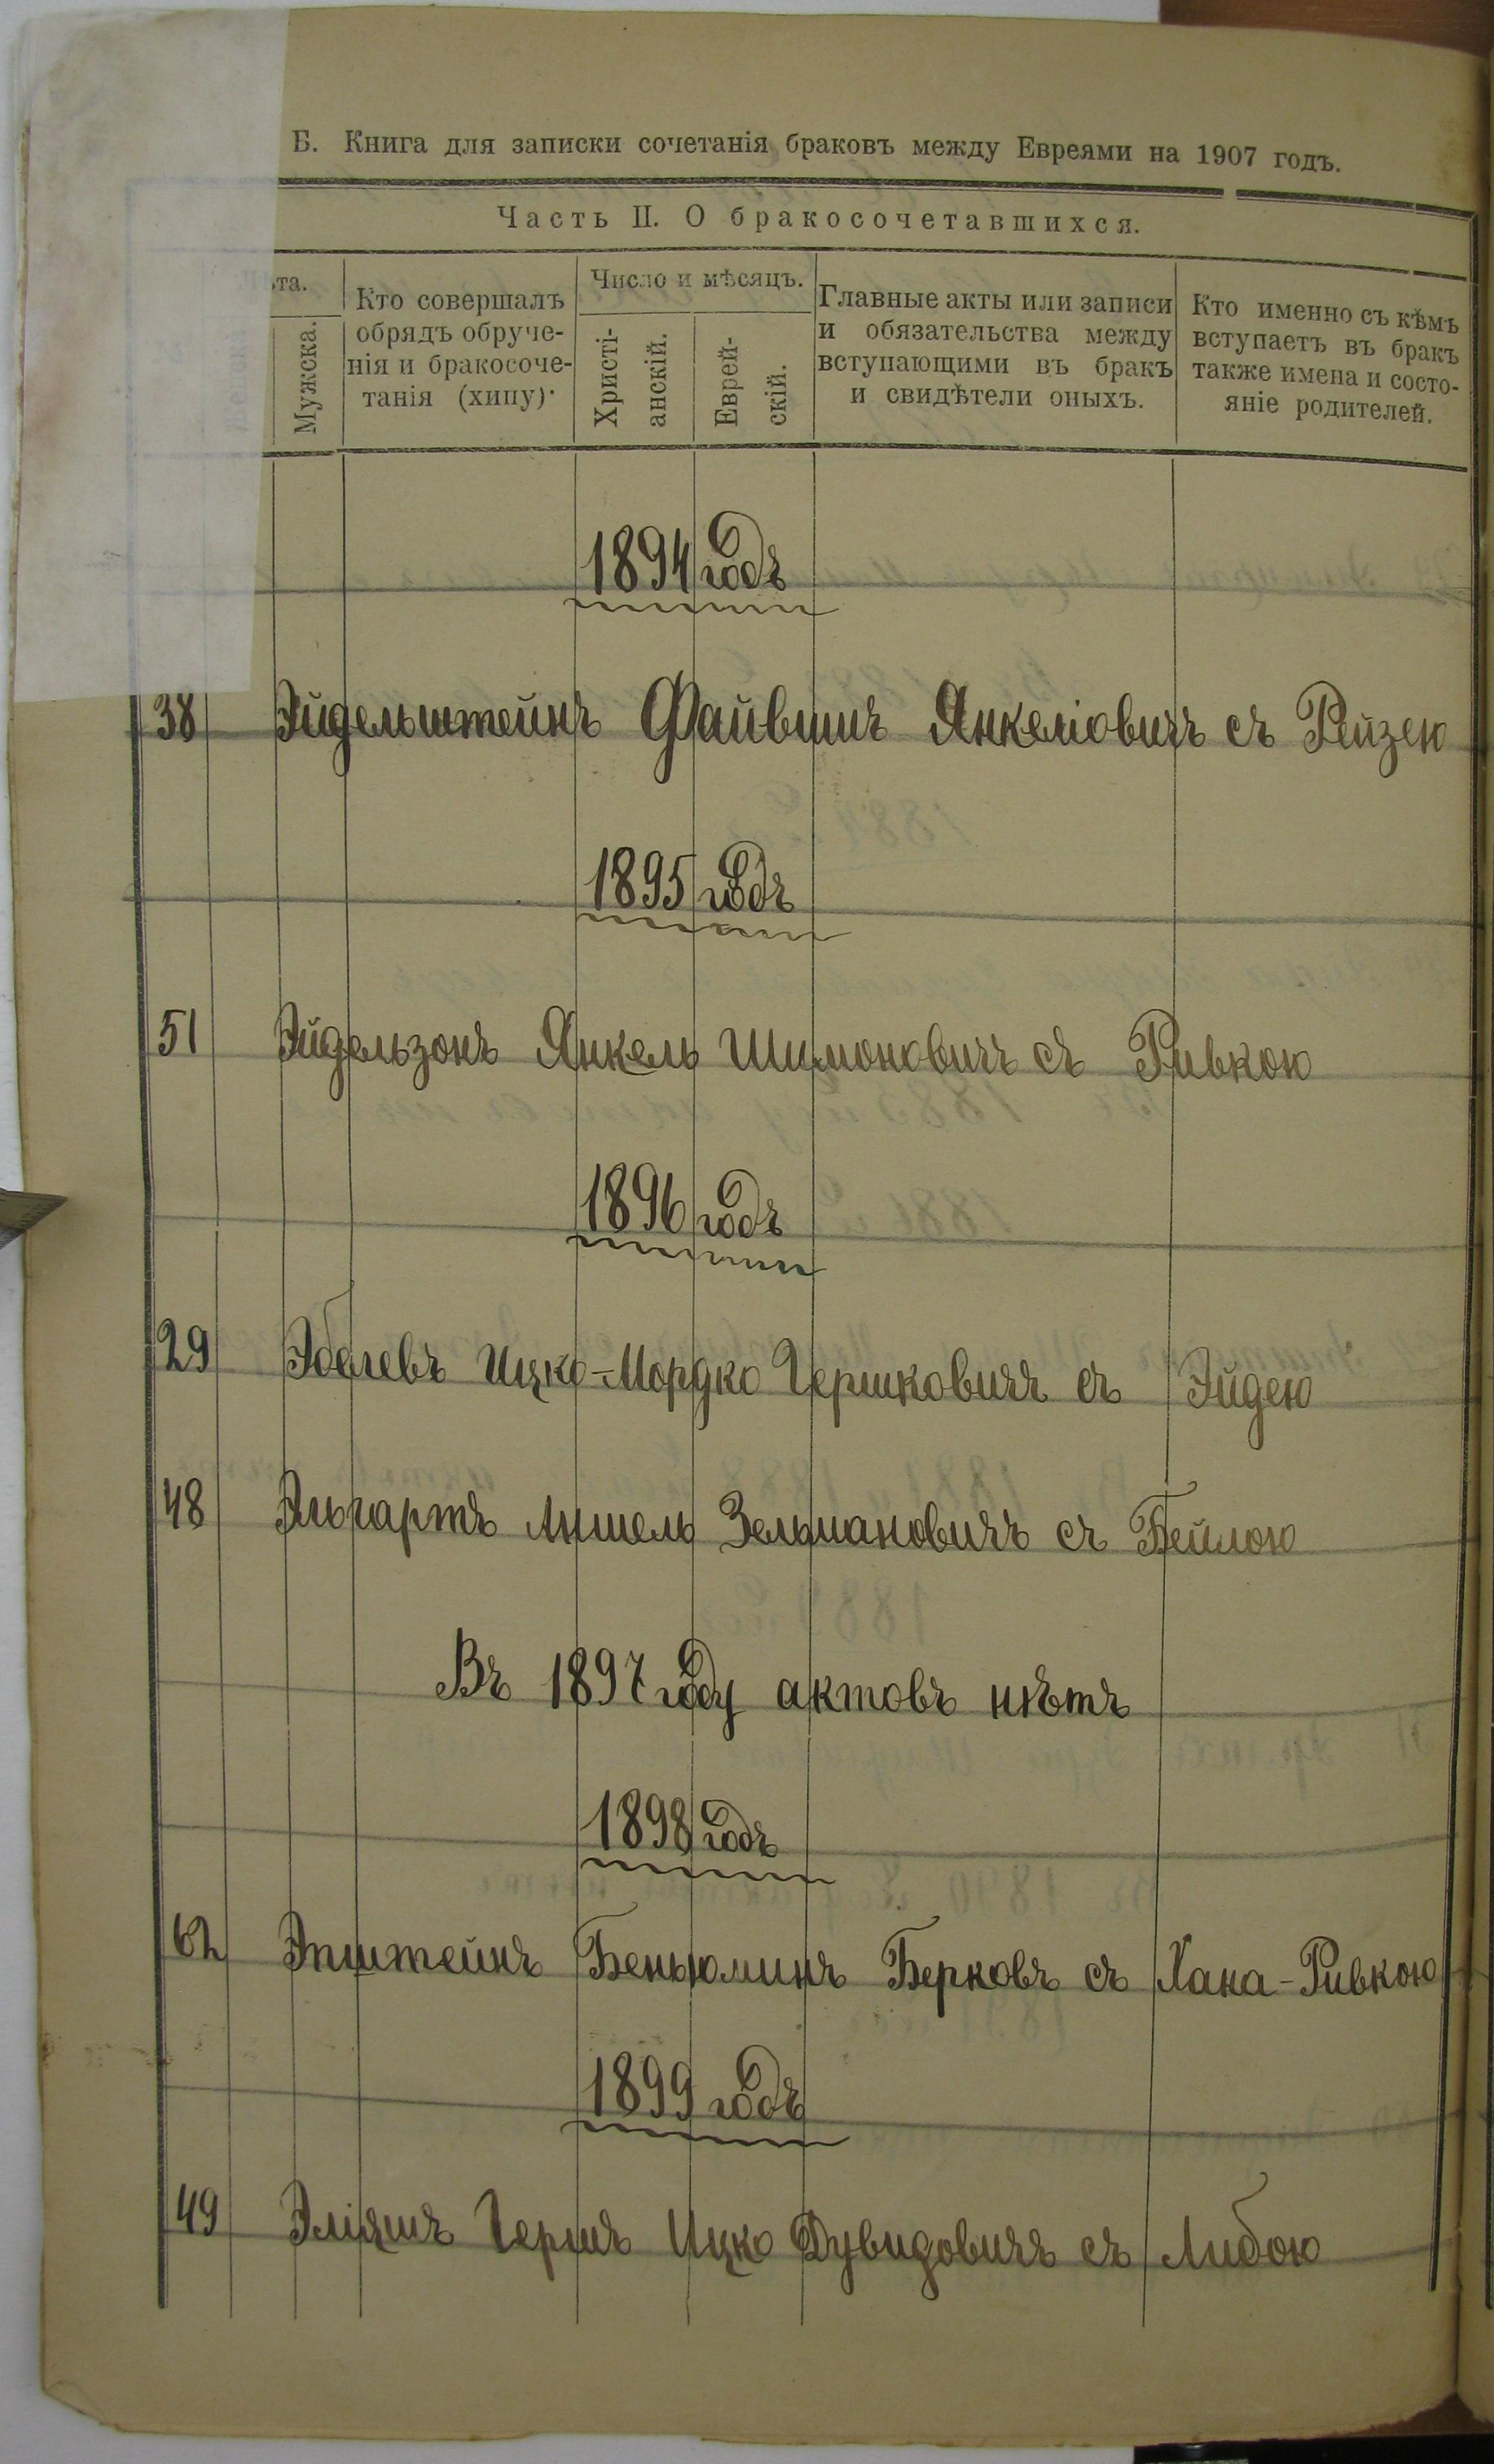 Б. Книга для записки сочетанія браковъ между Евреями на 1907 годъ.
Часть II. О бракосочетавшихся.
ѣта.
Мужска.
Кто совершалъ
обрядъ обруче-
нія и бракосоче-
танія (хипу).
Число и мѣсяцъ.
Христі-
анскій.
Еврей-
скій.
Главные акты или записи
и обязательства между
вступающими въ бракъ
и свидѣтели оныхъ.
Кто именно съ кѣмъ
вступаетъ въ бракъ
также имена и состо-
яніе родителей.
1894 годъ
38 Эйдельштейнъ Файвишъ Янкеліовичъ съ Рейзею
1895 годъ
51 Эйдельзонъ Янкель Шимоновичъ съ Ривкою
1896 годъ
29 Эбелевъ Ицко-Мордко Гершковичъ съ Эйдею
48 Эльгартъ Аншель Зельмановичъ съ Бейлою
Въ 1897 году актовъ нѣтъ
1898 годъ
62 Эпштейнъ Беньюминъ Берковъ съ Хана-Ривкою
1899 годъ
49 Эліяшъ Гершъ Ицко Дувидовичъ съ Либою